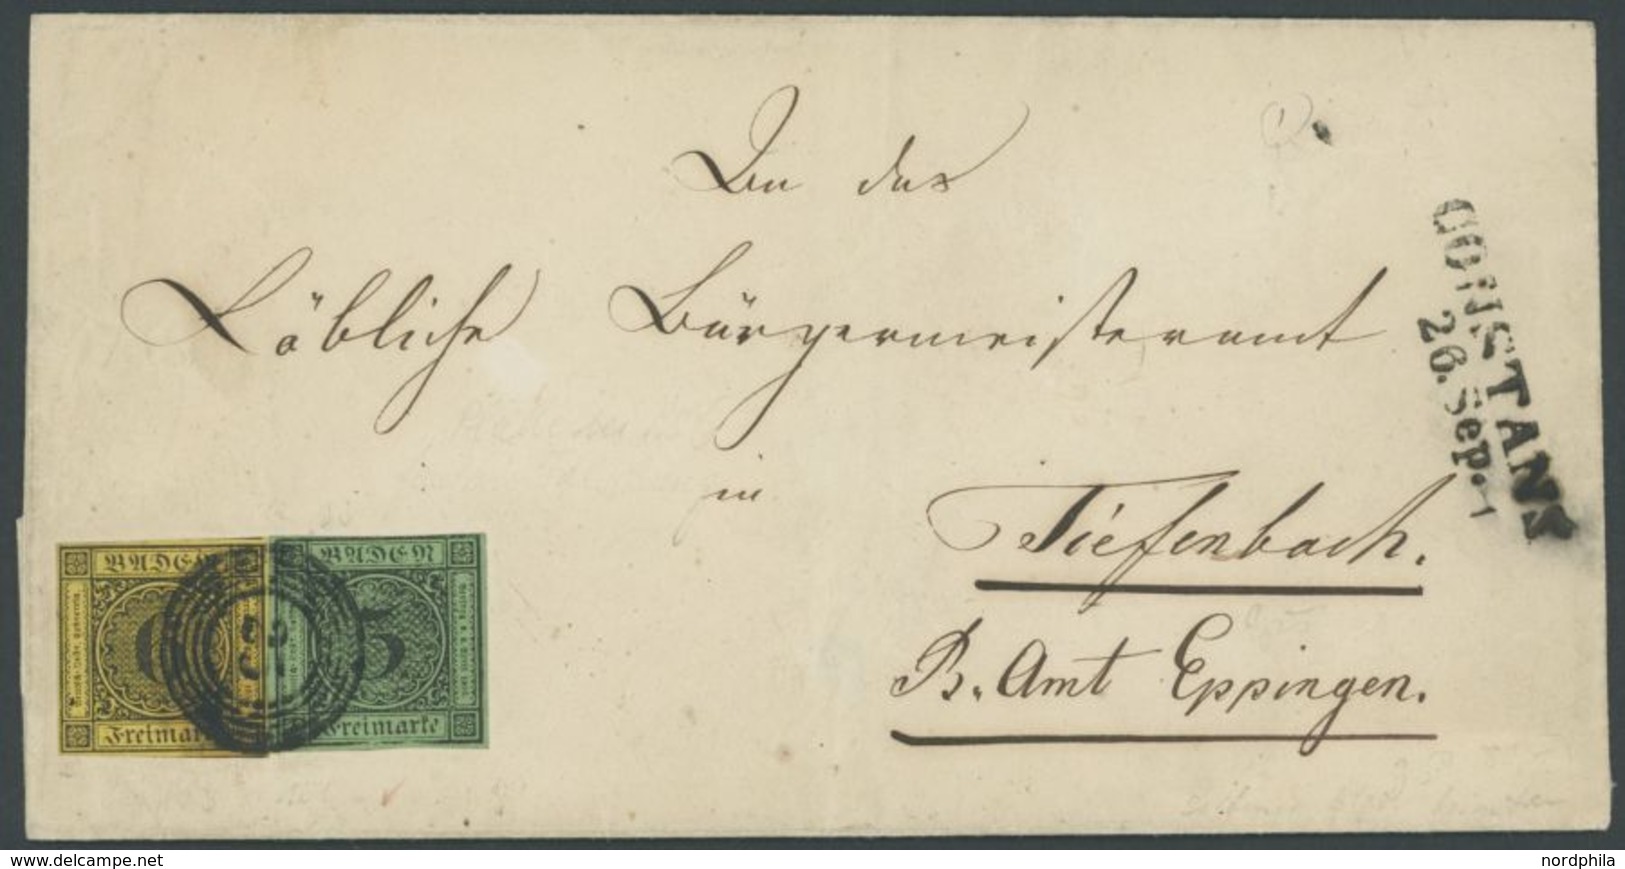 An das
Löbliche Bürgermeisteramt
in
Tiefenbach.
B. Amt Eppingen.
CONSTANZ
26. Sep.
BADEN
Freimarke
BADEN
3
Freimarke
www.delcampe.net
nordphila